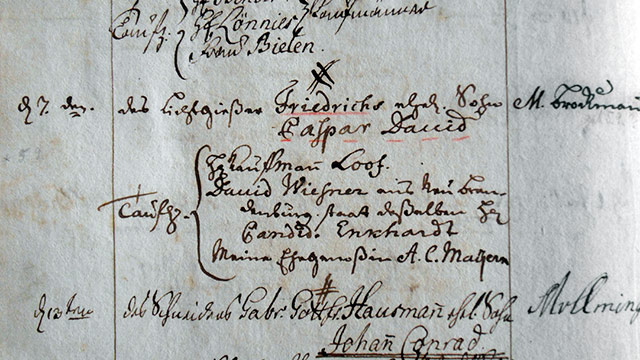 Taufz.
H. Könnies Kaufmänner
Frau Bielen.
d 7. den. des Lichtgießer Friedrichs ehel. Sohn M. Brodtmann
Caspar David
Taufz.
H Kauffmañ Loof.
David Wiesner aus Neu Bran-
denburg statt deßelben H
Candid. Enkhardt
Meine Ehegenoßin A. C.
des Schneiders Gabr. Hausmañ ehel. Sohn
Johañ Conrad.